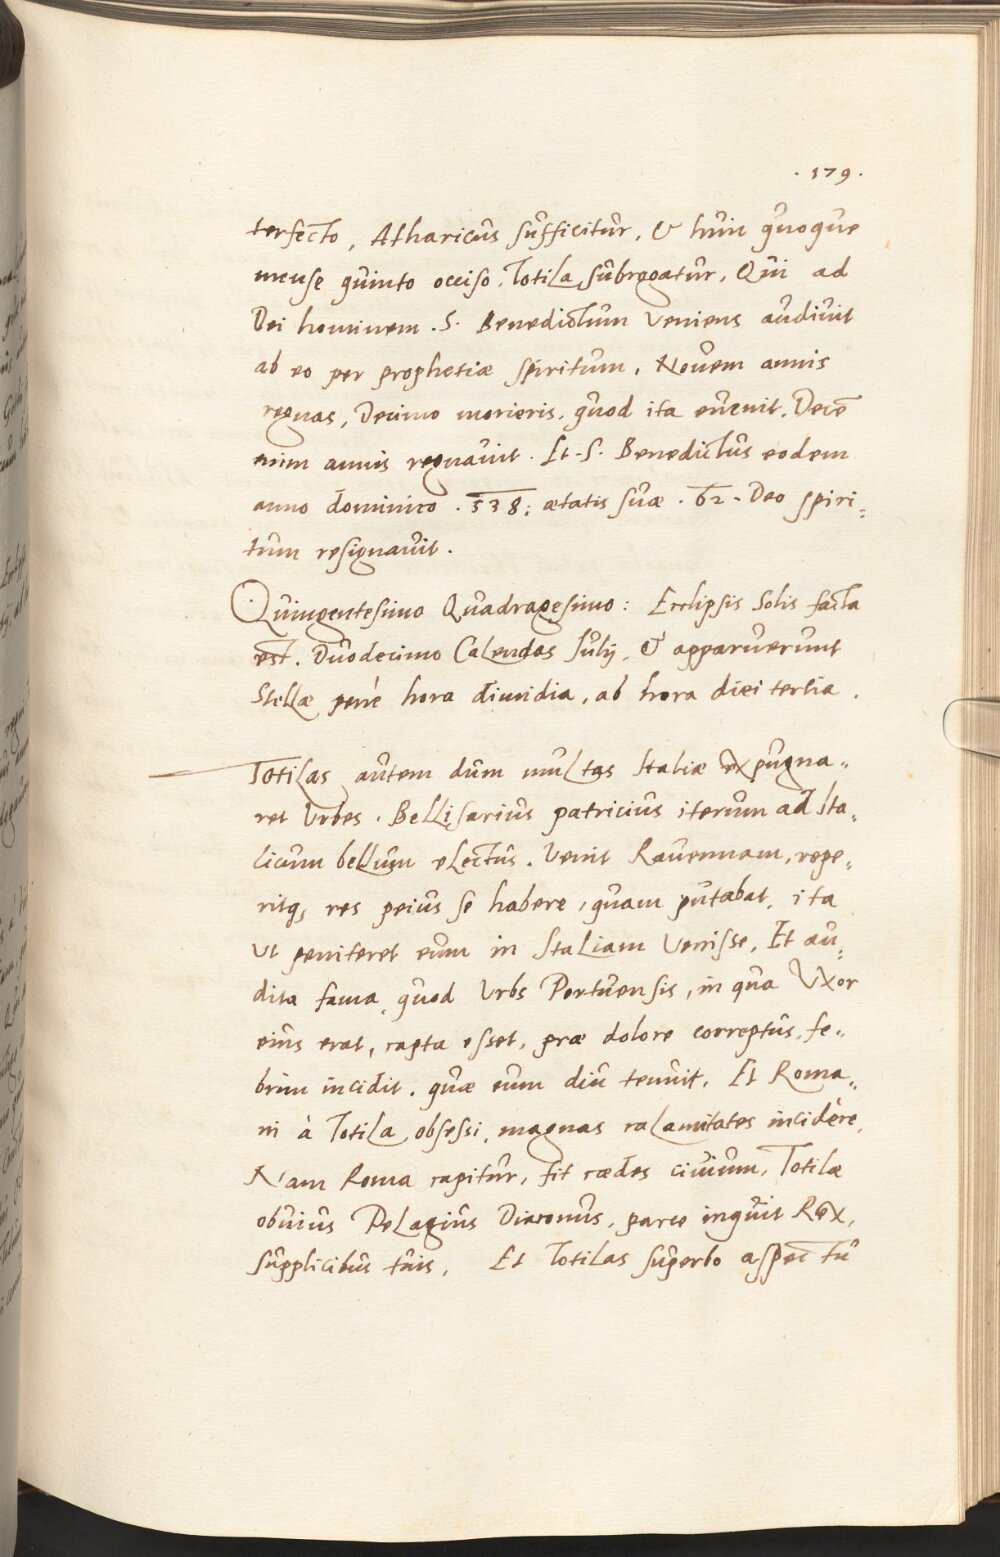 . 179 .
terfecto, Atharicus sufficitur, & huic quoque
mense quinto occiso, Totila subrogatur, Qui ad
Dei hominem . S. Benedictum veniens audivit
ab eo per prophetiæ spiritum, Novem annis
regnas, Decimo morieris. quod ita evenit. Decē
enim annis regnavit. Et. S. Benedictus eodem
anno dominico . 538; ætatis suæ . 62. Deo spiri=
tum resignavit.
Quingentesimo Quadragesimo: Ecclipsis Solis facta
est. Duodecimo Calendas Julij, & apparuerunt
Stellæ penè hora dimidia, ab hora diei tertia.
Totilas autem dum multas Italiæ expugna=
ret Urbes. Bellisarius patricius iterum ad Ita=
licum bellum electus. Venit Ravennam, repe=
ritq, res peius se habere, quam putabat, ita
ut peniteret eum in Italiam venisse, Et au=
dita fama, quod Urbs Portuensis, in qua Uxor
eius erat, capta esset, præ dolore correptus, fe=
brim incidit. quæ eum diu tenuit. Et Roma=
ni à Totila obsessi, magnas calamitates incidère.
Nam Roma capitur, fit cædes civium, Totilæ
obvius Pelagius Diaconus, parce inquit Rex,
supplicibus tuis, Et Totilas superbo aspectu